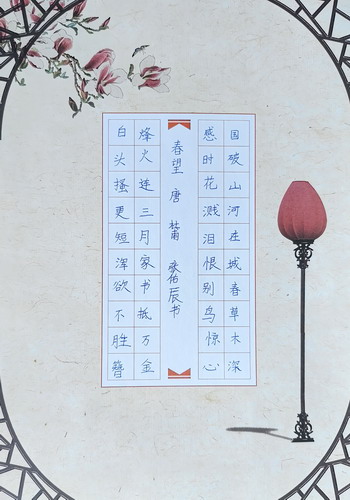 国破山河在城春草木深
感时花溅泪恨别鸟惊心
春望 唐 杜甫 张佑辰书
烽火连三月家书抵万金
白头搔更短浑欲不胜簪